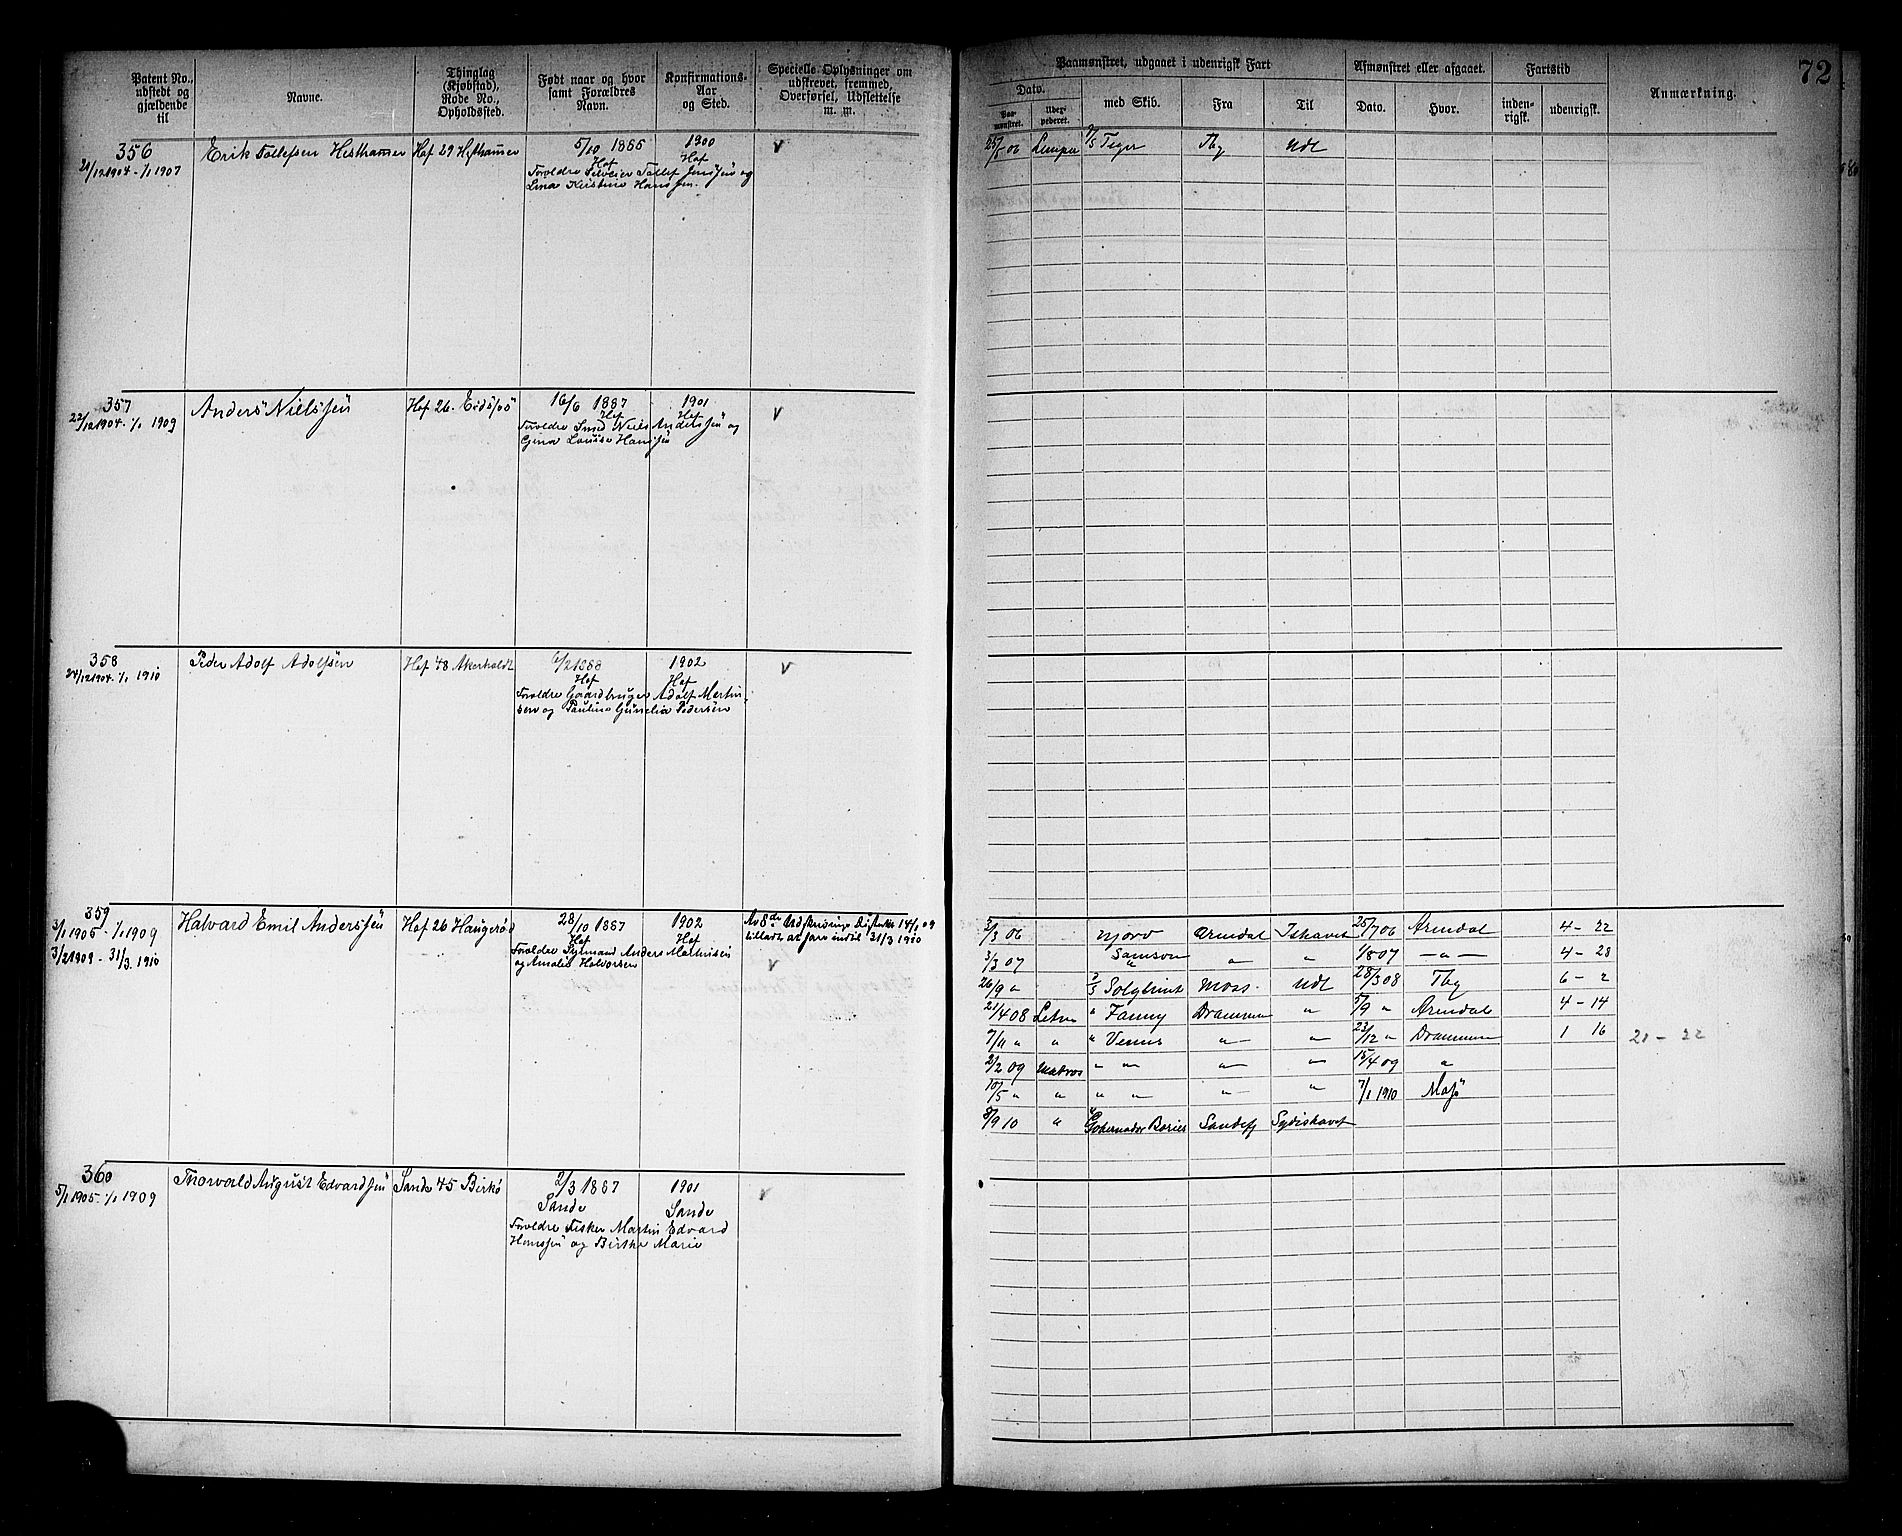 72
Patent No., udstedt og gjældende til
Navne.
Thinglag (Kjøbstad), Rode No., Opholdssted.
Født naar og hvor samt Forældres Navn.
Konfirmations-Aar og Sted.
Specielle Oplysninger om udskrevet, fremmed, Overførsel, Udslettelse m. m.
Paamønstret, udgaaet i udenrigsk Fart
Afmønstret eller afgaaet.
Fartstid
Anmærkning.
Dato.
Paa-mønstret.
med Skib.
Fra
Til
Dato.
Hvor.
inden-rigsk.
udenrigsk.
356
21/12 1904 - 1/1 1907
Erik Tollefsen Hesthammer
Hof 29 Hesthammer
5/10 1885
Hof
Forældre Tollef Jenssen og
Lina Kristine Hanssen.
1900
Hof
v
25/5 06
Tiger
Tbg
Udl
357
22/12 1904 - 1/1 1909
Anders Nielssen
Hof 26. Eidsfos
16/6 1887
Hof
Forældre Smed Niels Anderssen og
Gina Louise Hanssen
1901
Hof
v
358
24/12 1904 - 1/1 1910
Peder Adolf Adolfsen
Hof 48 Akerholdt
6/2 1888
Hof
Forældre Gaardbruger Adolf Martin-
sen og Pauline Gunelia Pedersen
1902
Hof
v
359
3/1 1905 - 1/1 1909
3/2 1909 - 31/3 1910
Halvard Emil Anderssen
Hof 26 Haugerød
28/10 1887
Hof
Forældre Anders Mathisen
og Amalie Halvorsen
1902
Hof
Av 8de Udskrivnings Distrikt 14/1 09
tilladt at fare indtil 31/3 1910
v
2/3 06 Njord Arendal Ishavet 25/7 06 Arendal 4 - 22
3/3 07 Samson " " 1/8 07 - " - 4 - 28
26/9 " Solglimt Moss. Udl 28/3 08 Tbg 6 - 2
21/4 08 Letm " Fanny Drammen " 5/9 " Arendal 4 - 14
7/11 " " " Venus " " 23/12 " Drammen 1 16
21 - 22
2/2 09 Matros " " " " 15/4 09 "
10/5 " " " " " " 7/1 1910 Mosj
8/9 10 " Gobernador Bories Sandefj Sydishavet
360
5/1 1905 - 1/1 1909
Thorvald August Edvardsen
Sande 45 Birkø
2/3 1887
Sande
Forældre Fisker Martin Edvard
Hanssen og Birthe Marie
1901
Sande
v